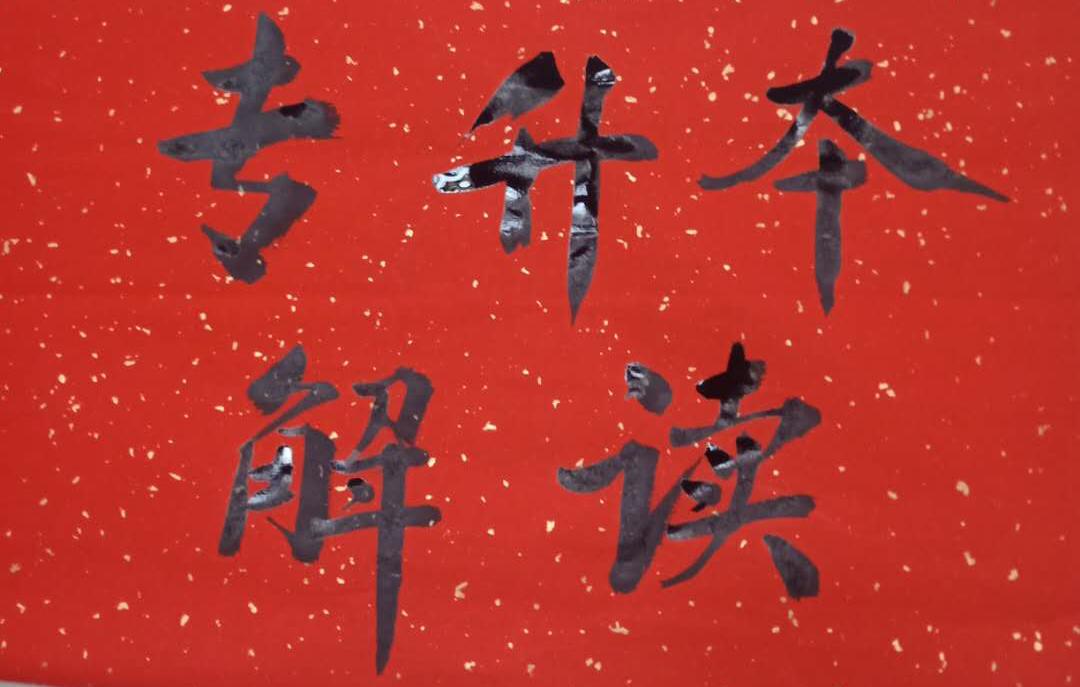 专升本
解读